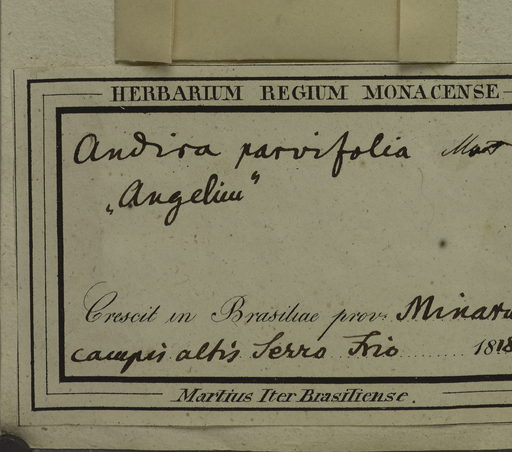 HERBARIUM REGIUM MONACENSE
Andira parvifolia Mart
„Angelim"
Crescit in Brasiliae prov: Minaru
campis altis Serro Frio 1818
Martius Iter Brasiliense.